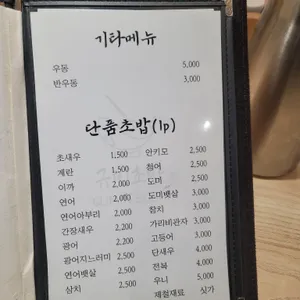 기타메뉴
우동 5,000
반우동 3,000
단품초밥(1p)
초새우 1,500
계란 1,500
이까 2,000
연어 2,000
연어아부리 2,200
간장새우 2,200
광어 2,200
광어지느러미 2,500
연어뱃살 2,500
삼치 2,500
안키모 2,500
청어 2,500
도미 2,500
도미뱃살 3,000
참치 3,000
가리비관자 3,000
고등어 3,000
단새우 4,000
전복 4,000
우니 5,000
제철재료 싯가